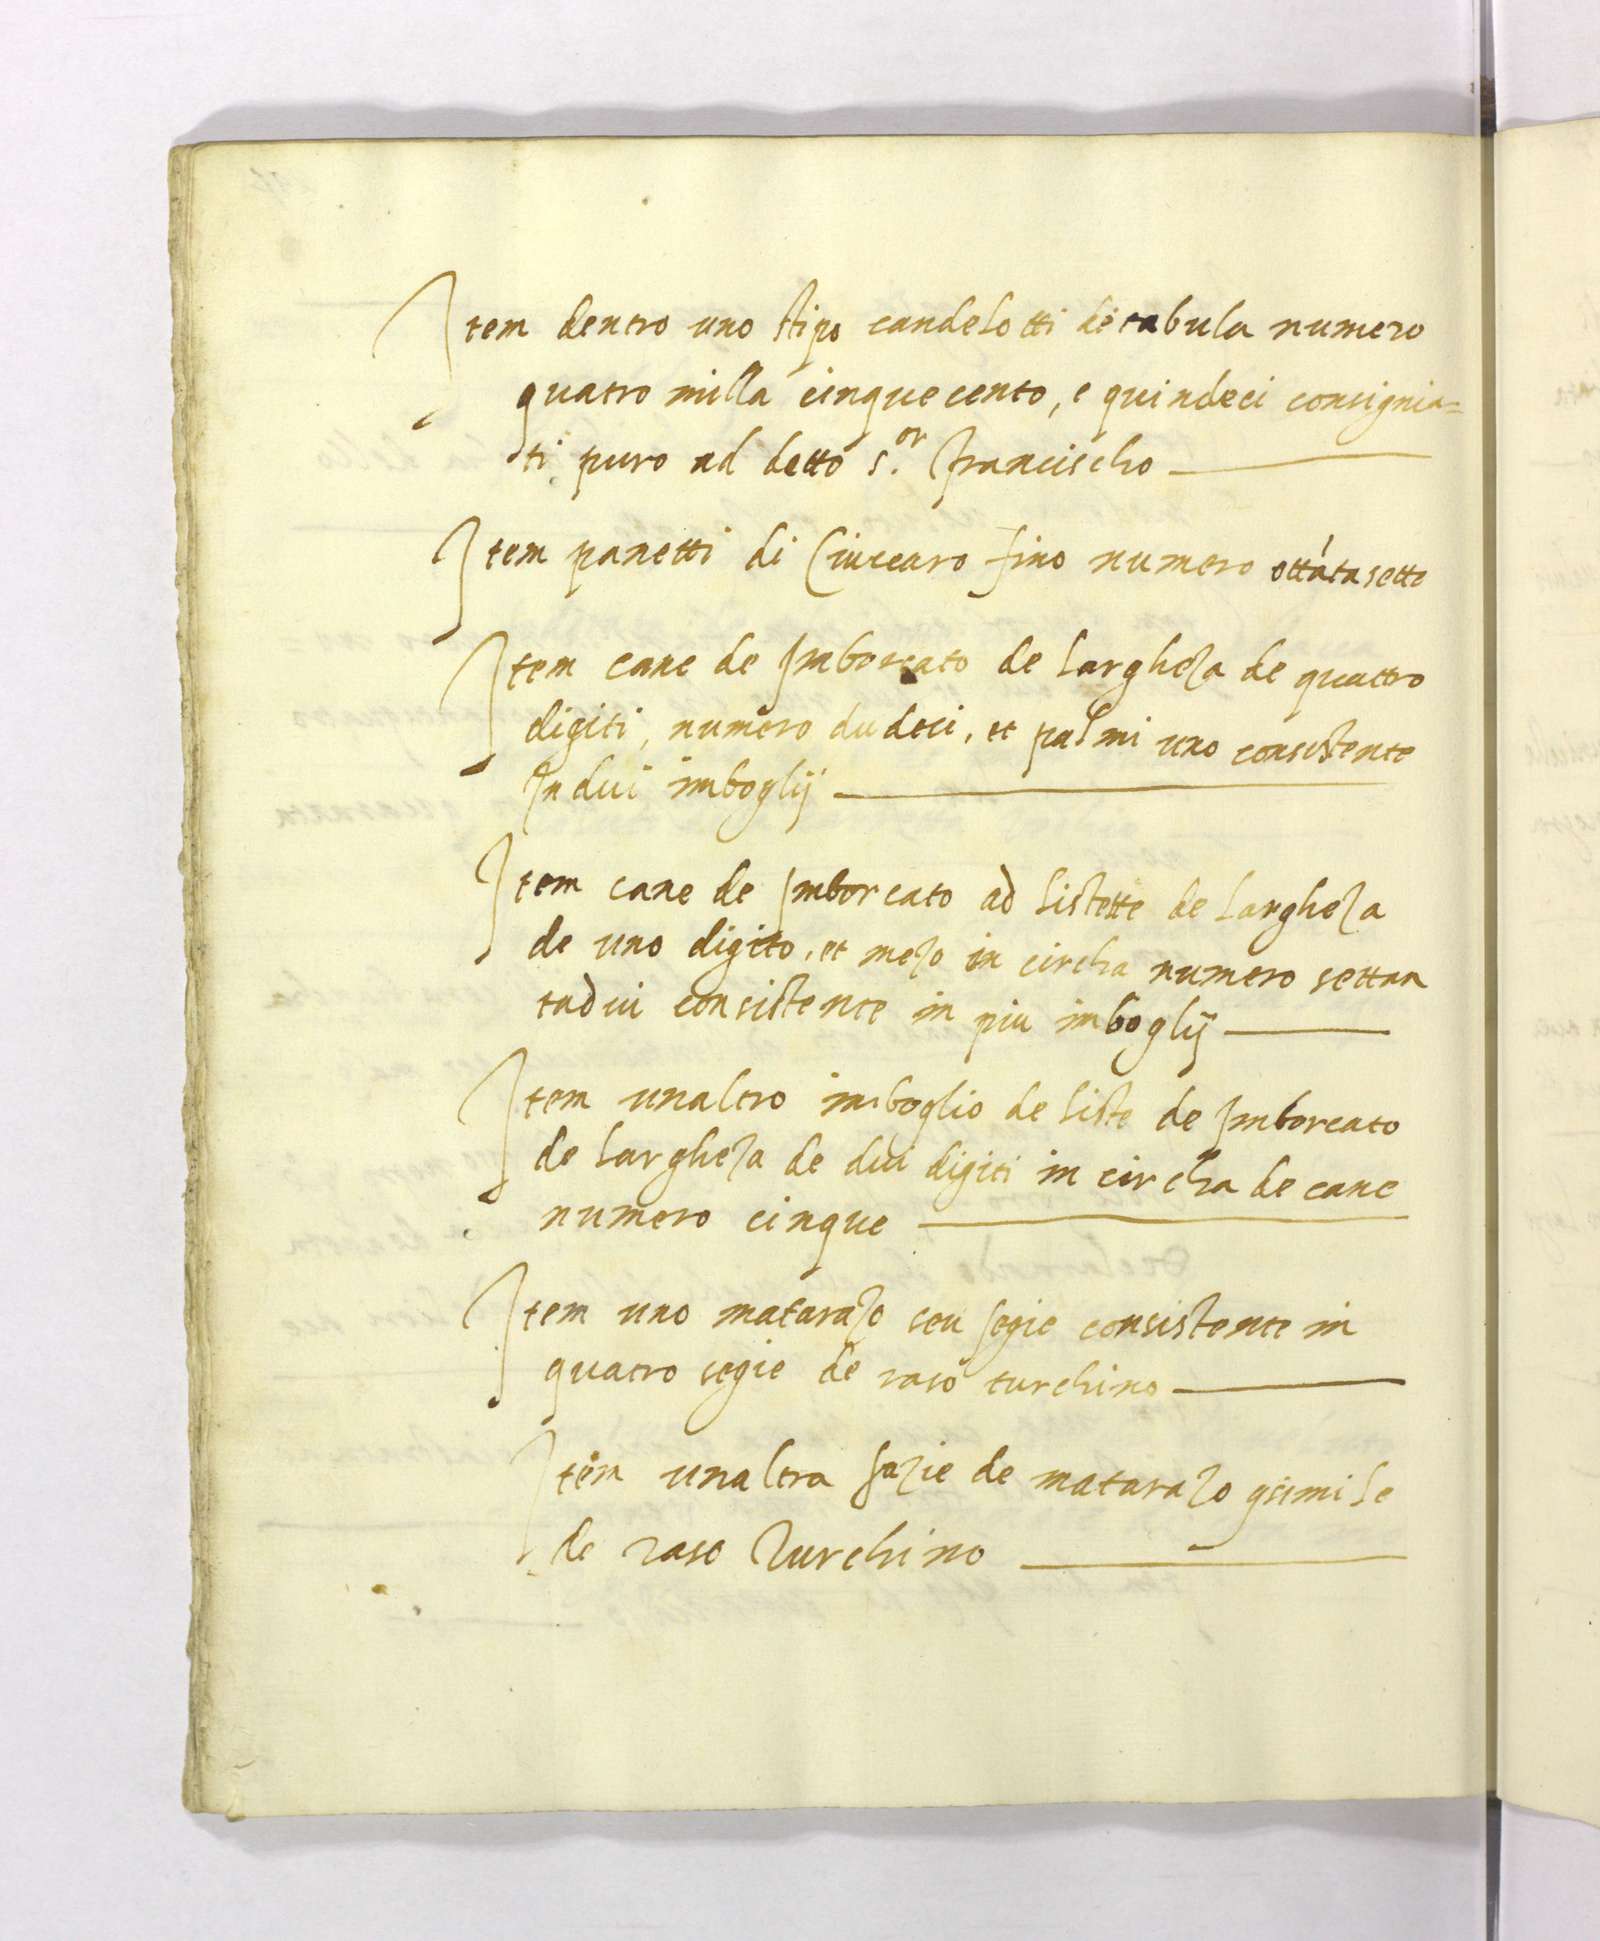 Item dentro uno stipo candelotti di tabula numero
quatro milla cinquecento, e quindeci consignia=
ti puro ad detto s.or Francischo
Item panetti di Ciuccaro fino numero ottãta sette
Item cane de Imborcato de largheza de quattro
digiti, numero dudeci, et palmi uno consistente
In dui imboglij
Item cane de Imborcato ad listette de largheza
de uno digito, et mezo in circha numero settan
tadui consistente in piu imboglij
Item unaltro imboglio de liste de Imborcato
de largheza de dui digiti in circha de cane
numero cinque
Item uno matarazo seu segie consistente in
quatro segie de raso turchino
Item unaltra fazie de matarazo
de raso Turchino